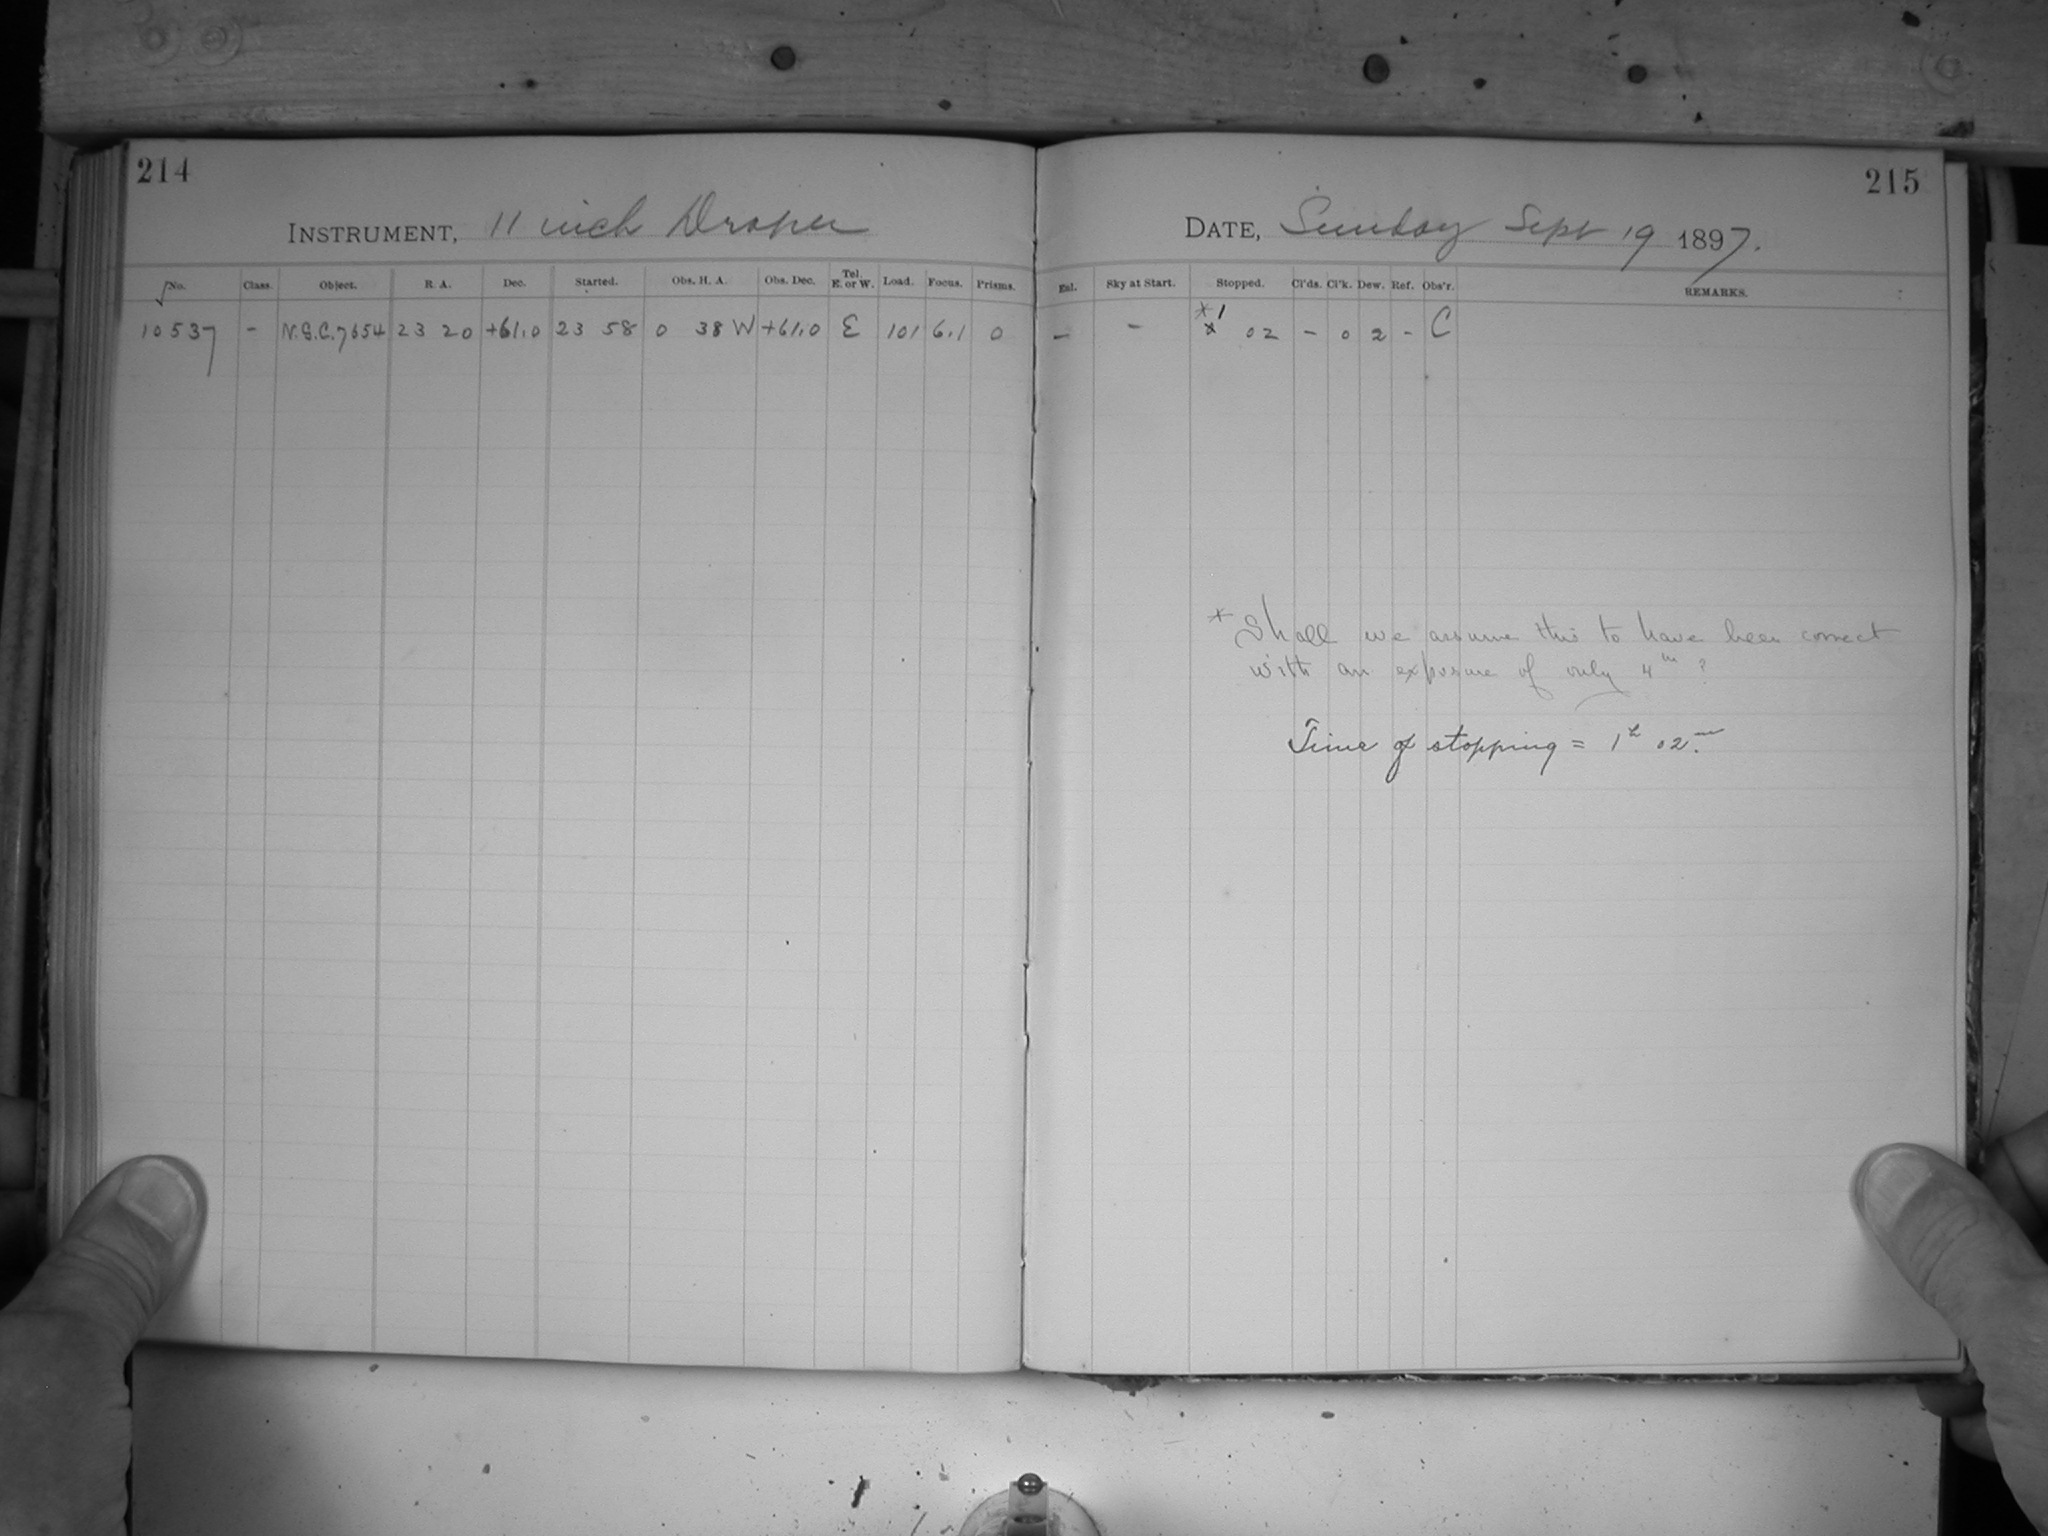 214
INSTRUMENT, 11 inch Draper
No. Class. Object. R. A. Dec. Started. Obs. H. A. Obs. Dec. Tel. E. or W. Load. Focus. Prisms.
10537 - N.G.C.7654 23 20 +61.0 23 58 0 38 W +61.0 E 101 6.1 0
215
DATE, Sunday Sept 19 1897.
Enl. Sky at Start. Stopped. Cl'ds. Cl'k. Dew. Ref. Obs'r. REMARKS.
*1
- - * 02 - 0 2 - C
* Shall we assume this to have been correct
with an exposure of only 4m ?
Time of stopping = 1h 02m.